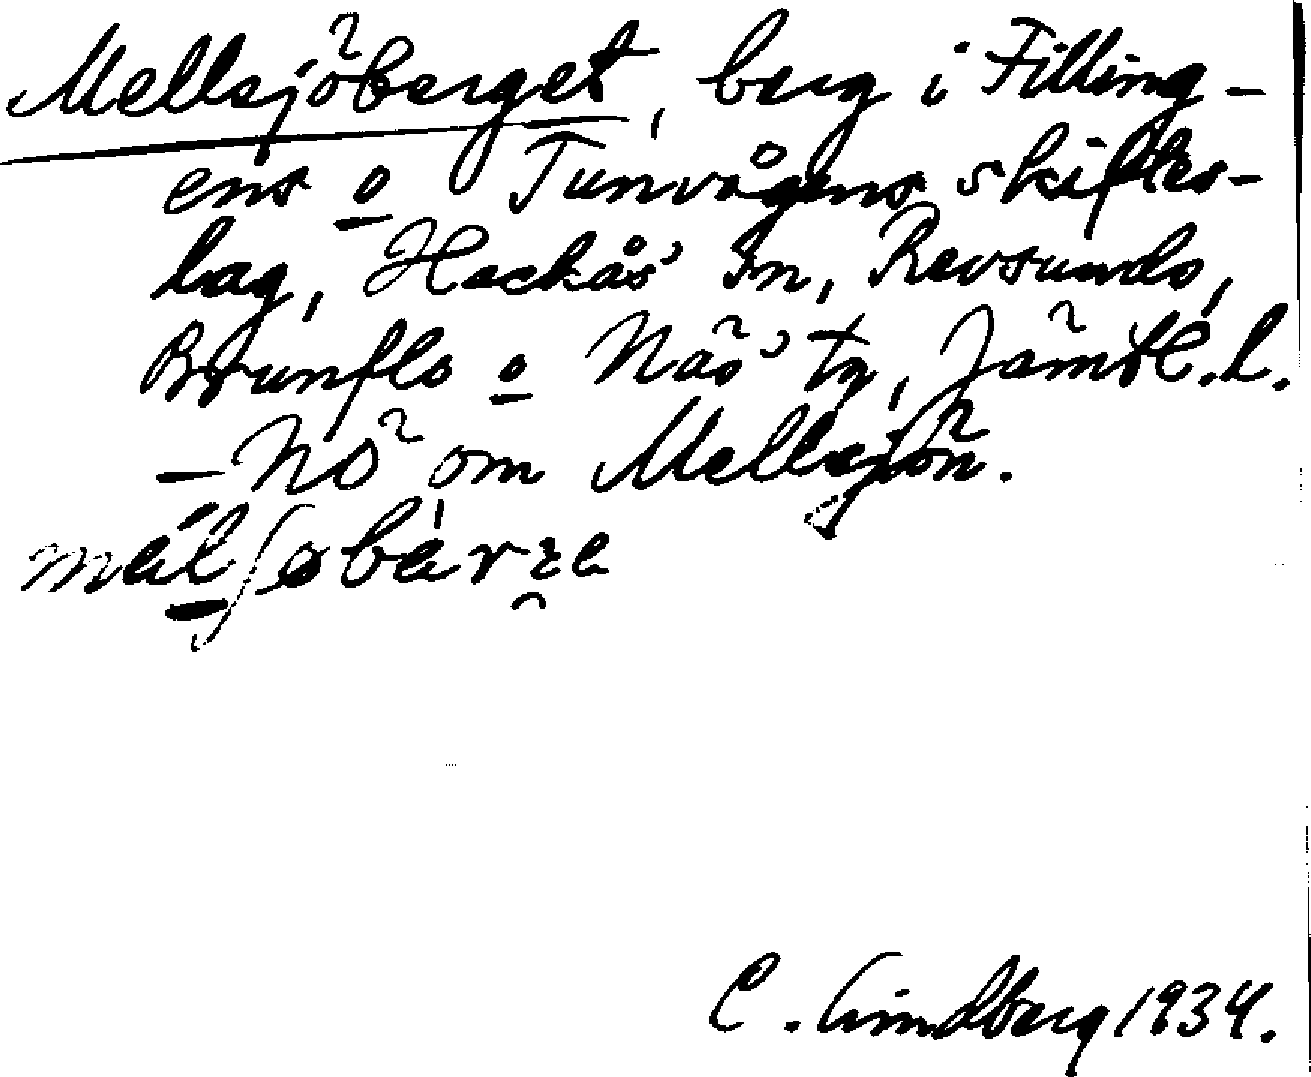 Mellsjöberget, berg i Filling-
ens o Tunvågens skiftes-
lag, Hackås' sn, Revsunds,
Brunflo o Näs' tg, Jämtl. l.
– NÖ om Mellsjön.
C. Lindberg 1934.